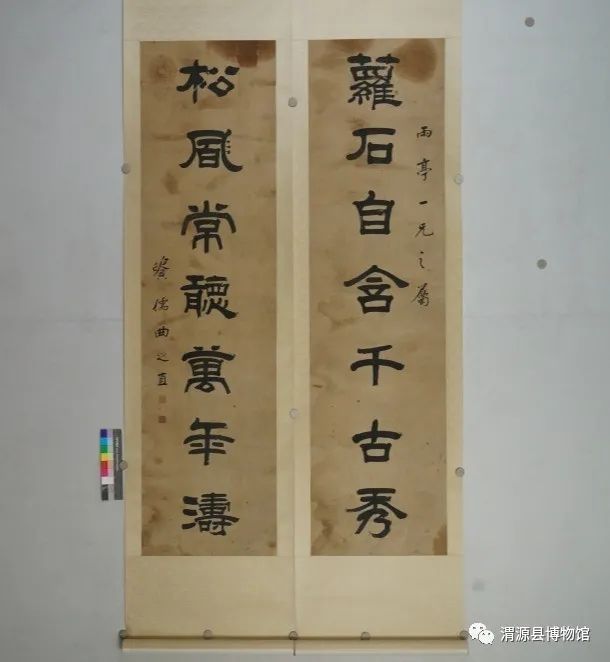 雨亭一兄之屬
蘿石自含千古秀
松風常聽萬年濤
儒曲之直
渭源县博物馆